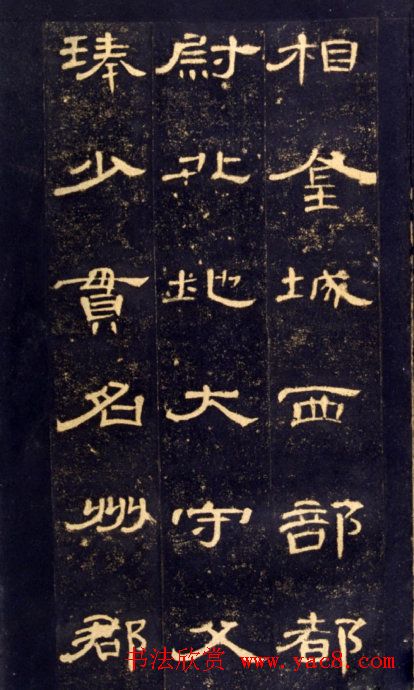 相金城西部都
尉北地大守父
琫少貫名州郡
书法欣赏 www.yac8.com